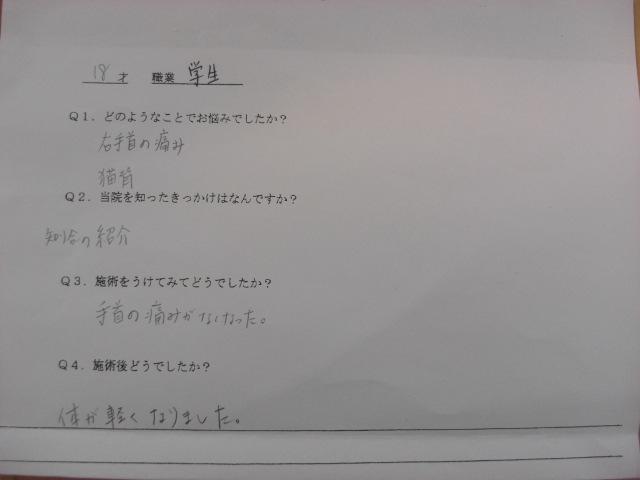 18 才 職業 学生
Q1．どのようなことでお悩みでしたか？
右手首の痛み
猫背
Q2．当院を知ったきっかけはなんですか？
知合の紹介
Q3．施術をうけてみてどうでしたか？
手首の痛みがなくなった。
Q4．施術後どうでしたか？
体が軽くなりました。